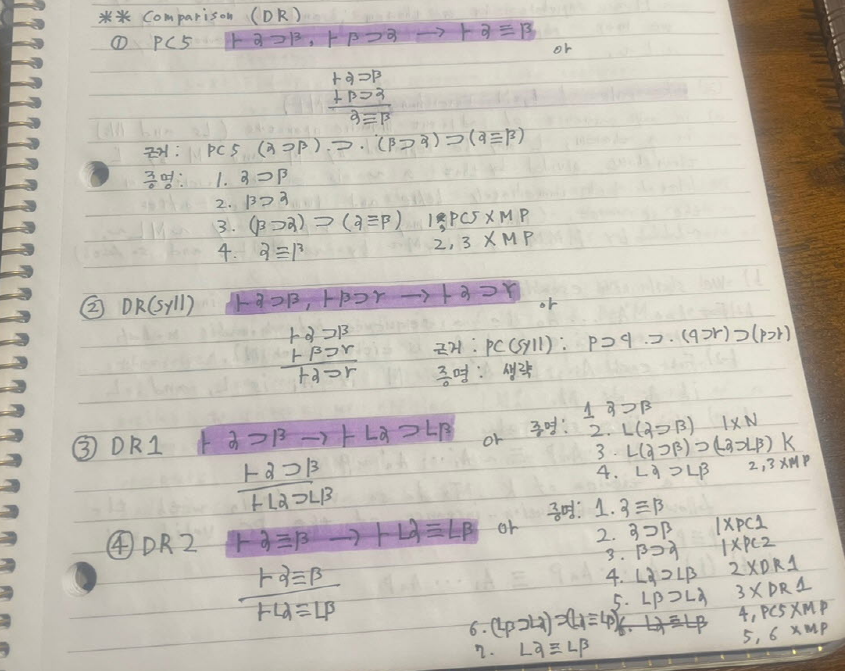 ** Comparison (DR)
① PC5 ⊢α⊃β, ⊢β⊃α → ⊢α≡β or
⊢α⊃β
⊢β⊃α
α≡β
근거: PC5 (α⊃β) .⊃. (β⊃α)⊃(α≡β)
증명: 1. α⊃β
2. β⊃α
3. (β⊃α)⊃(α≡β) 1, PC5 × MP
4. α≡β 2, 3 × MP
② DR(syll) ⊢α⊃β, ⊢β⊃r → ⊢α⊃r or
⊢α⊃β
⊢β⊃r
⊢α⊃r
근거: PC(syll): p⊃q .⊃. (q⊃r)⊃(p⊃r)
증명: 생략
③ DR1 ⊢α⊃β → ⊢Lα⊃Lβ or
⊢α⊃β
⊢Lα⊃Lβ
증명: 1 α⊃β
2. L(α⊃β) 1×N
3. L(α⊃β)⊃(Lα⊃Lβ) K
4. Lα⊃Lβ 2,3×MP
④ DR2 ⊢α≡β → ⊢Lα≡Lβ or
⊢α≡β
⊢Lα≡Lβ
증명: 1. α≡β
2. α⊃β 1×PC1
3. β⊃α 1×PC2
4. Lα⊃Lβ 2×DR1
5. Lβ⊃Lα 3×DR1
6. (Lβ⊃Lα)⊃(Lα≡Lβ) 6. Lα≡Lβ 4, PC5×MP
7. Lα≡Lβ 5, 6 ×MP